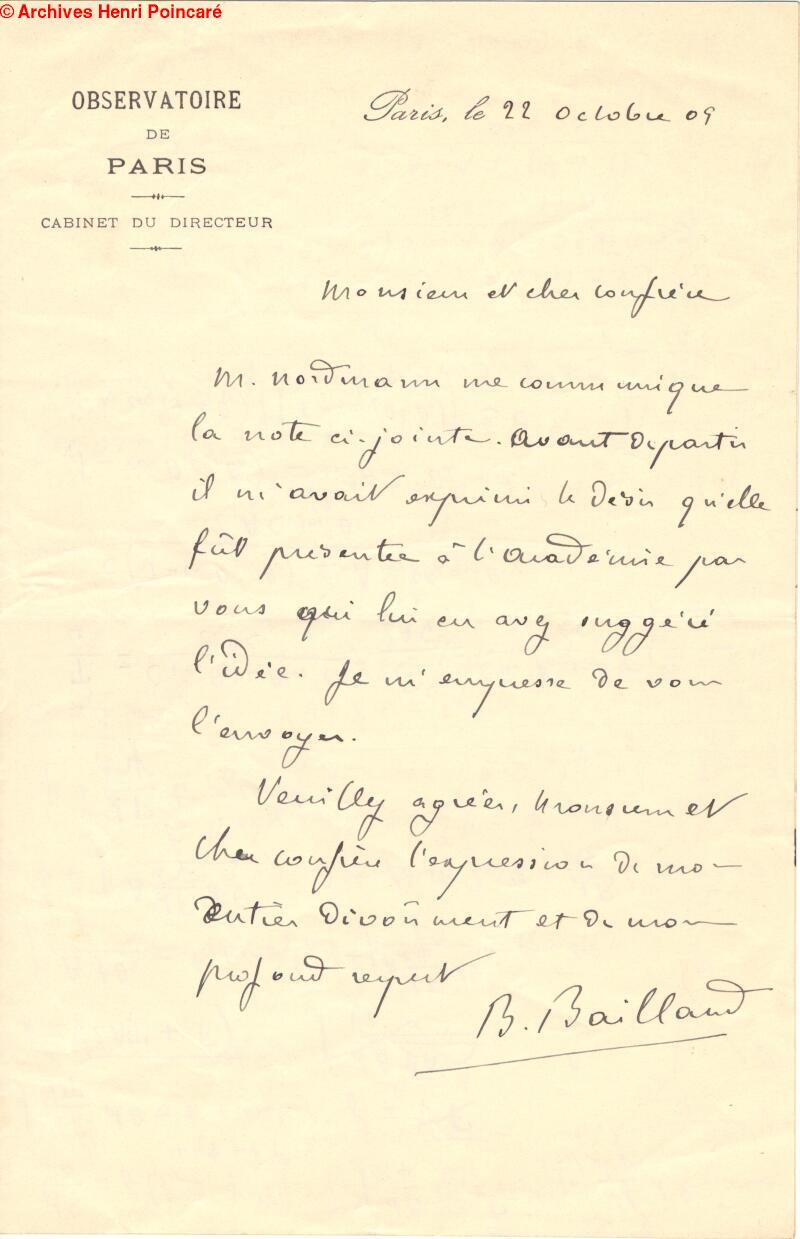 © Archives Henri Poincaré
OBSERVATOIRE
DE
PARIS
CABINET DU DIRECTEUR
Paris, le 22 Octobre 09
Monsieur et cher confrère
M. Nordmann me communique
la note ci-jointe. Avant de partir
il m'avait exprimé le désir qu'elle
fût présentée à l'Académie par
vous qui lui en avez suggéré
l'idée. Je m'empresse de vous
l'envoyer.
Veuillez agréer, Monsieur et
cher confrère l'expression de mon
entier dévoûment et de mon
profond respect
B. Baillaud